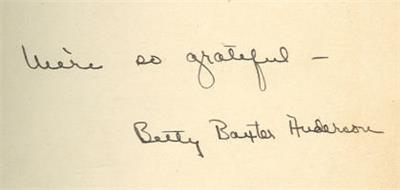 We're so grateful —
Betty Baxter Anderson